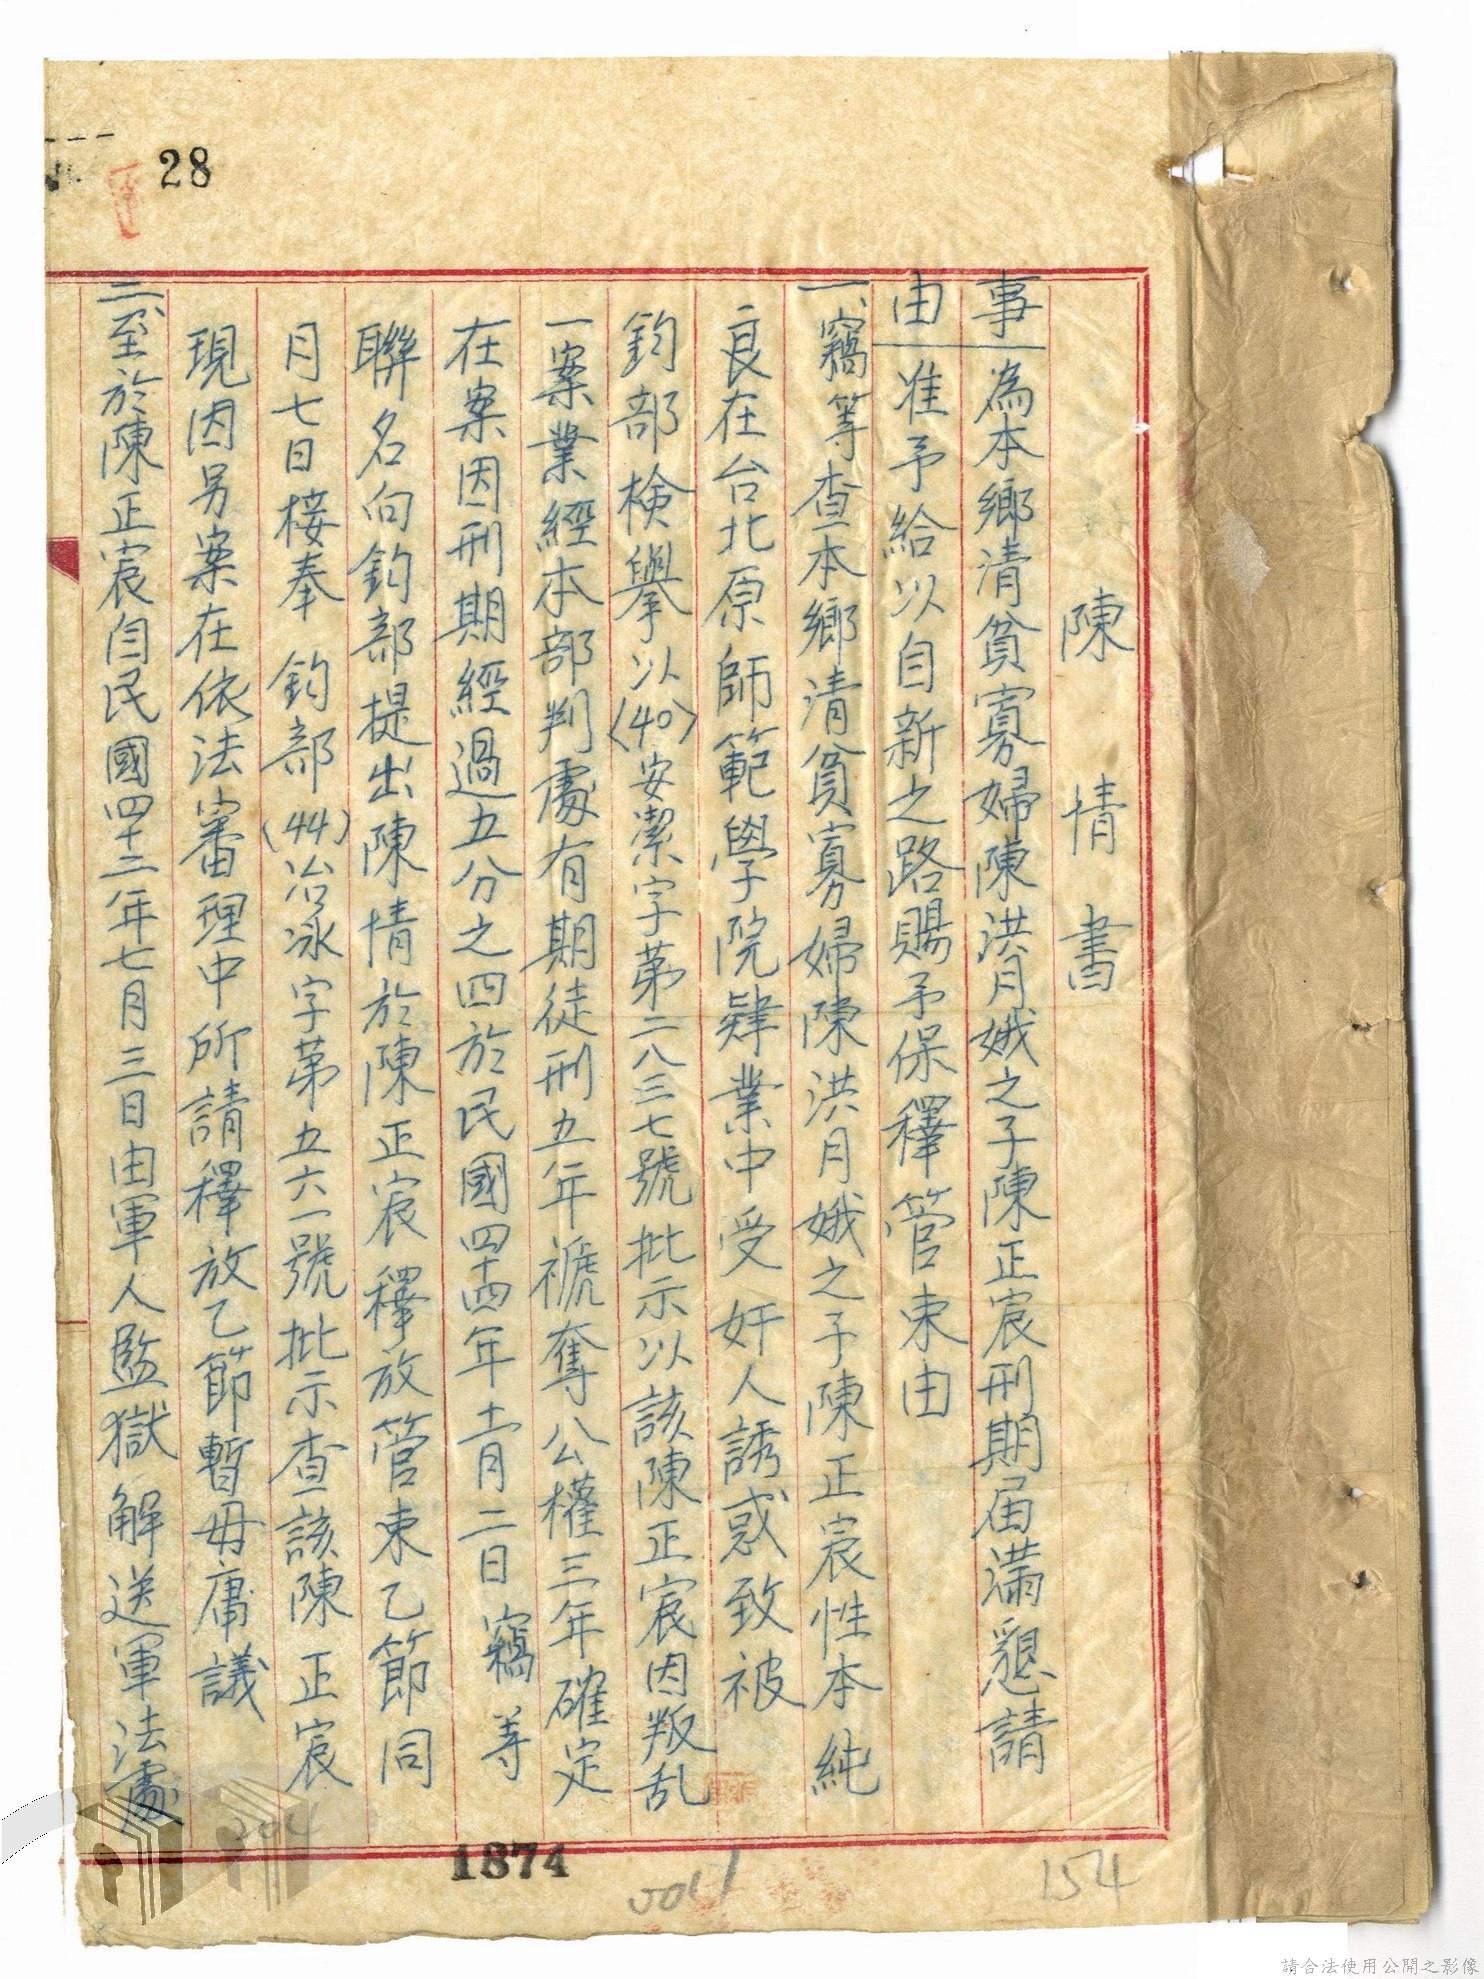 28
陳情書
事 為本鄉清貧寡婦陳洪月娥之子陳正宸刑期届滿懇請
由 准予給以自新之路賜予保釋管束由
一、竊等查本鄉清貧寡婦陳洪月娥之子陳正宸性本純
良在台北原師範學院肄業中受奸人誘惑致被
鈞部檢舉以(40)安潔字第二八三七號批示以該陳正宸因叛乱
一案業經本部判處有期徒刑五年褫奪公權三年確定
在案因刑期經過五分之四於民國四十四年十一月二日竊等
聯名向鈞部提出陳情於陳正宸釋放管束乙節同
月七日接奉 鈞部(44)治泳字第五六一號批示查該陳正宸
現因另案在依法審理中所請釋放乙節暫毋庸議
二、至於陳正宸自民國四十二年七月三日由軍人監獄解送軍法處
204
1874
154
請合法使用公開之影像